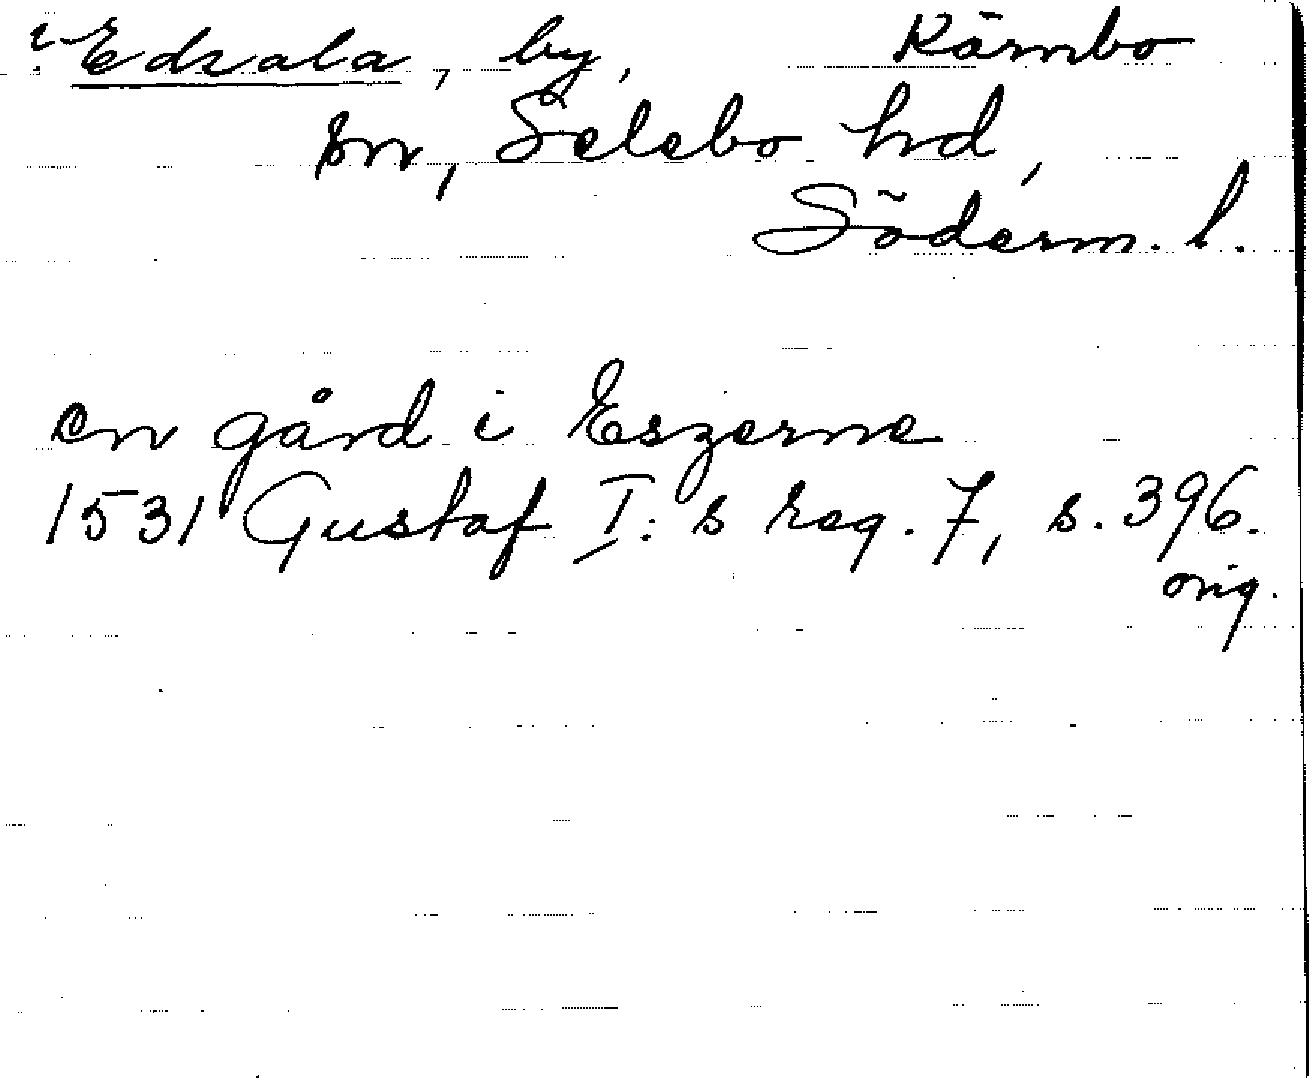 ? Edsala, by, Kärnbo
sn, Selebo hd,
Söderm. l.
en gård i Eszerne
1531 Gustaf I:s reg. 7, s. 396.
orig.